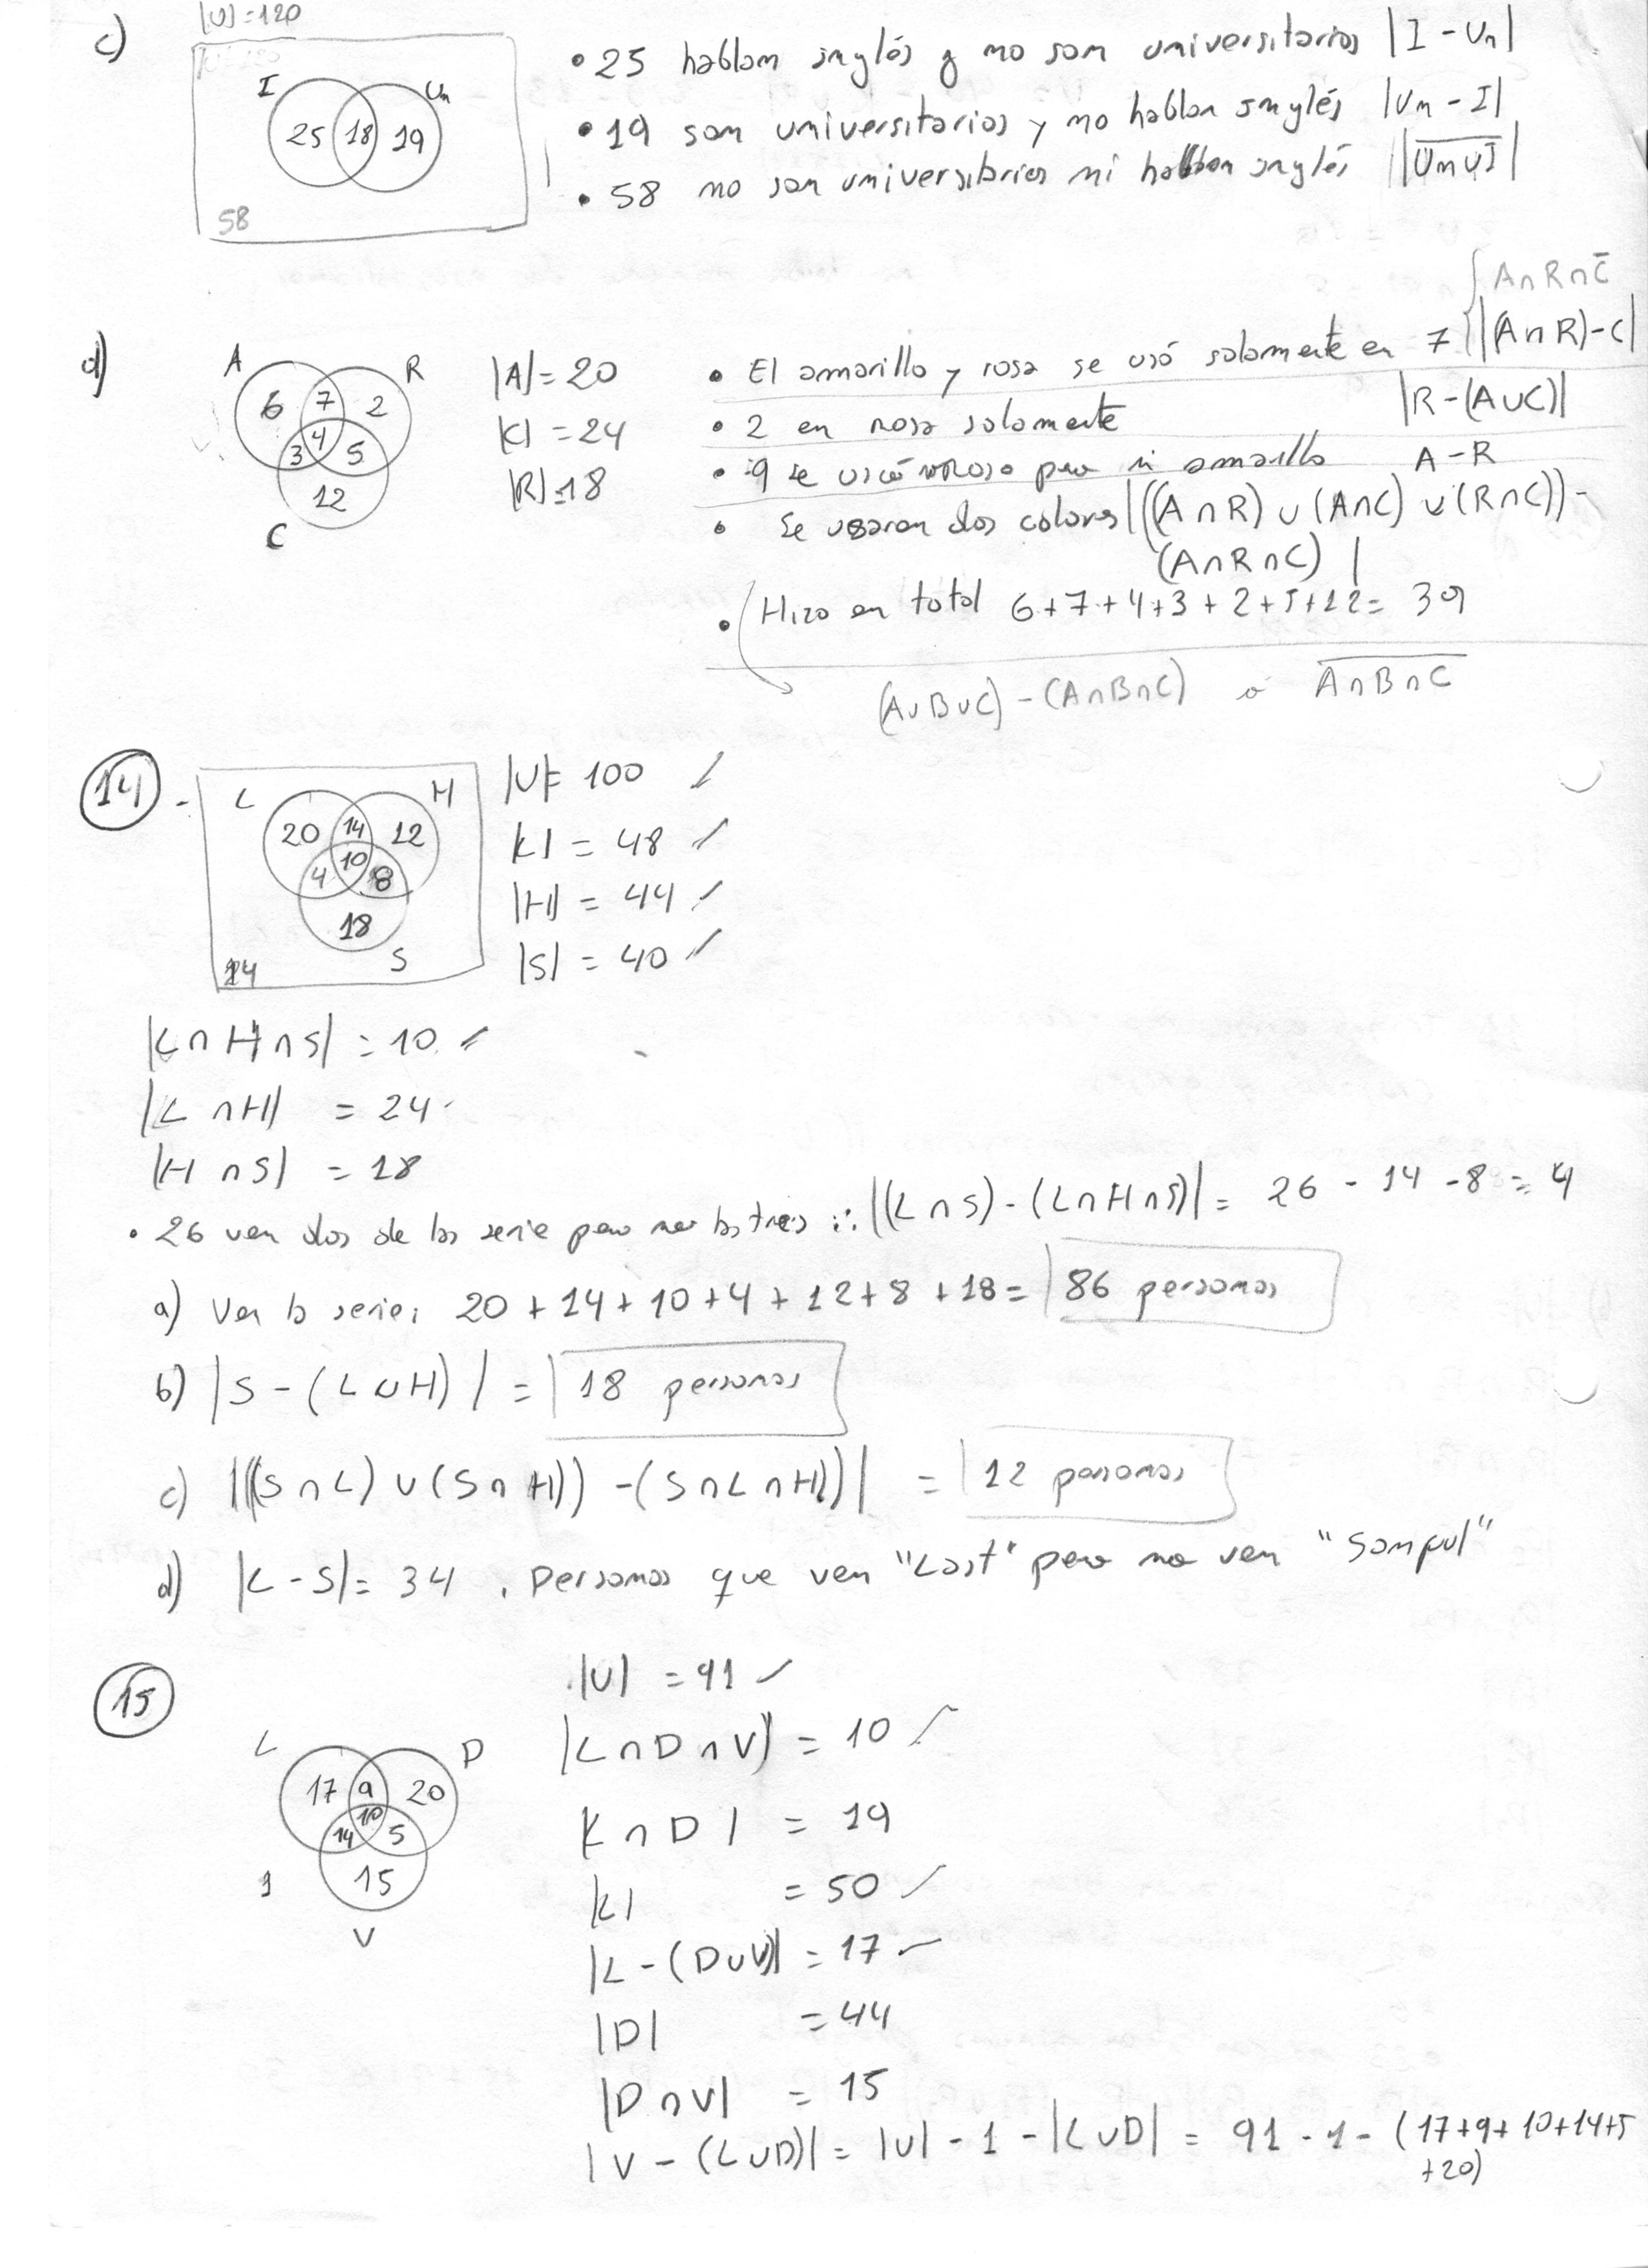 |U|=120
c)
I Un
25 18 19
58
• 25 hablan inglés y no son universitarios |I - Un|
• 19 son universitarios y no hablan inglés |Un - I|
• 58 no son universitarios ni hablan inglés |\overline{Un∪I}|
d)
A R
6 7 2
3 4 5
12
C
|A|= 20
|C| = 24
|R|=18
A∩R∩C̄
• El amarillo y rosa se usó solamente en 7 |(A∩R)-C|
• 2 en rosa solamente |R-(A∪C)|
• 9 se usó pero ni amarillo A-R
• Se usaron dos colores |((A∩R) ∪ (A∩C) ∪ (R∩C)) -
(A∩R∩C) |
• Hizo en total 6+7+4+3+2+5+12= 39
(A∪B∪C) - (A∩B∩C) ó \overline{A∩B∩C}
14 -
L H
20 14 12
4 10 8
18
14 S
|U|= 100 ✓
|L| = 48 ✓
|H| = 44 ✓
|S| = 40 ✓
|L∩H∩S| = 10 ✓
|L∩H| = 24
|H∩S| = 18
• 26 ven dos de las serie pero no las tres ∴ |(L∩S) - (L∩H∩S)| = 26 - 14 - 8 = 4
a) Ven la serie: 20 + 14 + 10 + 4 + 12 + 8 + 18 = 86 personas
b) |S - (L∪H)| = 18 personas
c) |((S∩L) ∪ (S∩H)) - (S∩L∩H))| = 12 personas
d) |L - S| = 34 . Personas que ven "Lost" pero no ven "Sampul"
15
L D
17 9 20
14 10 5
1 15
V
|U| = 91 ✓
|L∩D∩V| = 10 ✓
|L∩D| = 19
|L| = 50 ✓
|L - (D∪V)| = 17 ✓
|D| = 44
|D∩V| = 15
|V - (L∪D)| = |U| - 1 - |L∪D| = 91 - 1 - (17+9+10+14+5
+20)